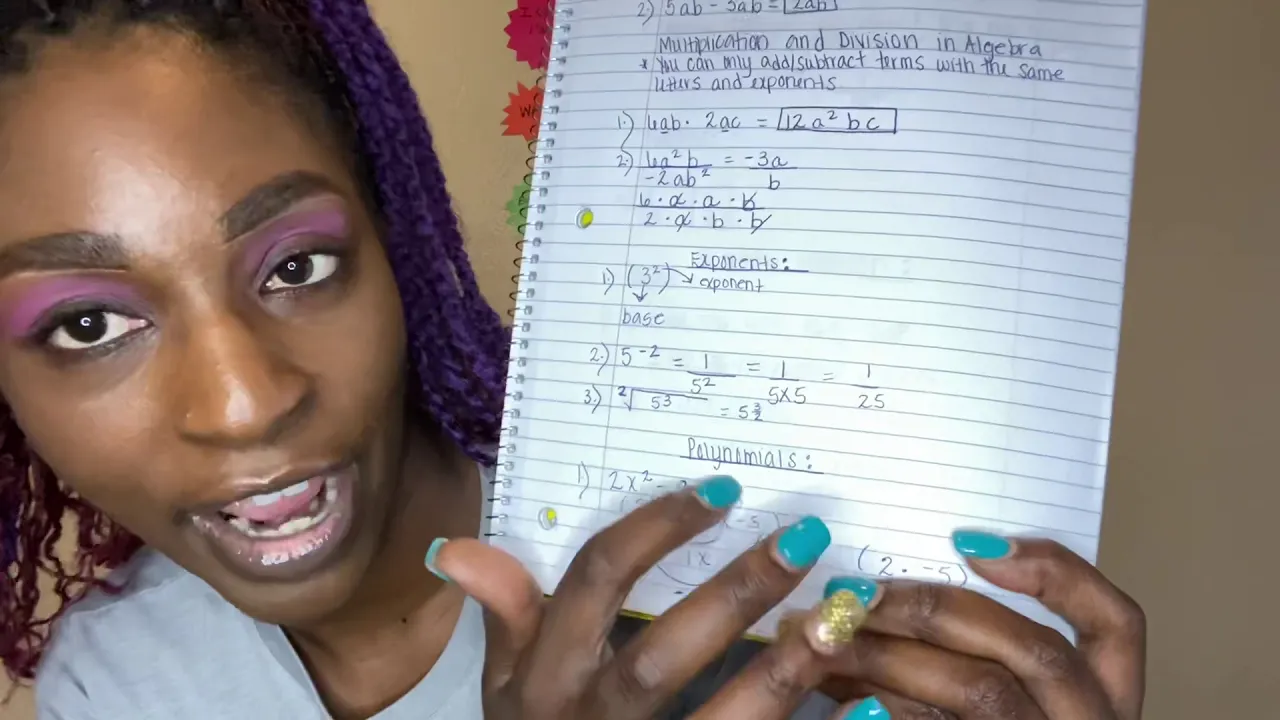 2) 5ab - 3ab = 2ab
Multiplication and Division in Algebra
* You can only add/subtract terms with the same
letters and exponents
1.) 6ab · 2ac = 12a² bc
2.) 6a²b / -2ab² = -3a / b
6 · a · a · b
2 · a · b · b
Exponents:
1) (3²) → exponent
base
2.) 5⁻² = 1/5² = 1/5×5 = 1/25
3.) ²√5³ = 5 3/2
Polynomials:
1) 2x² -
-5)
1x
(2 · -5)